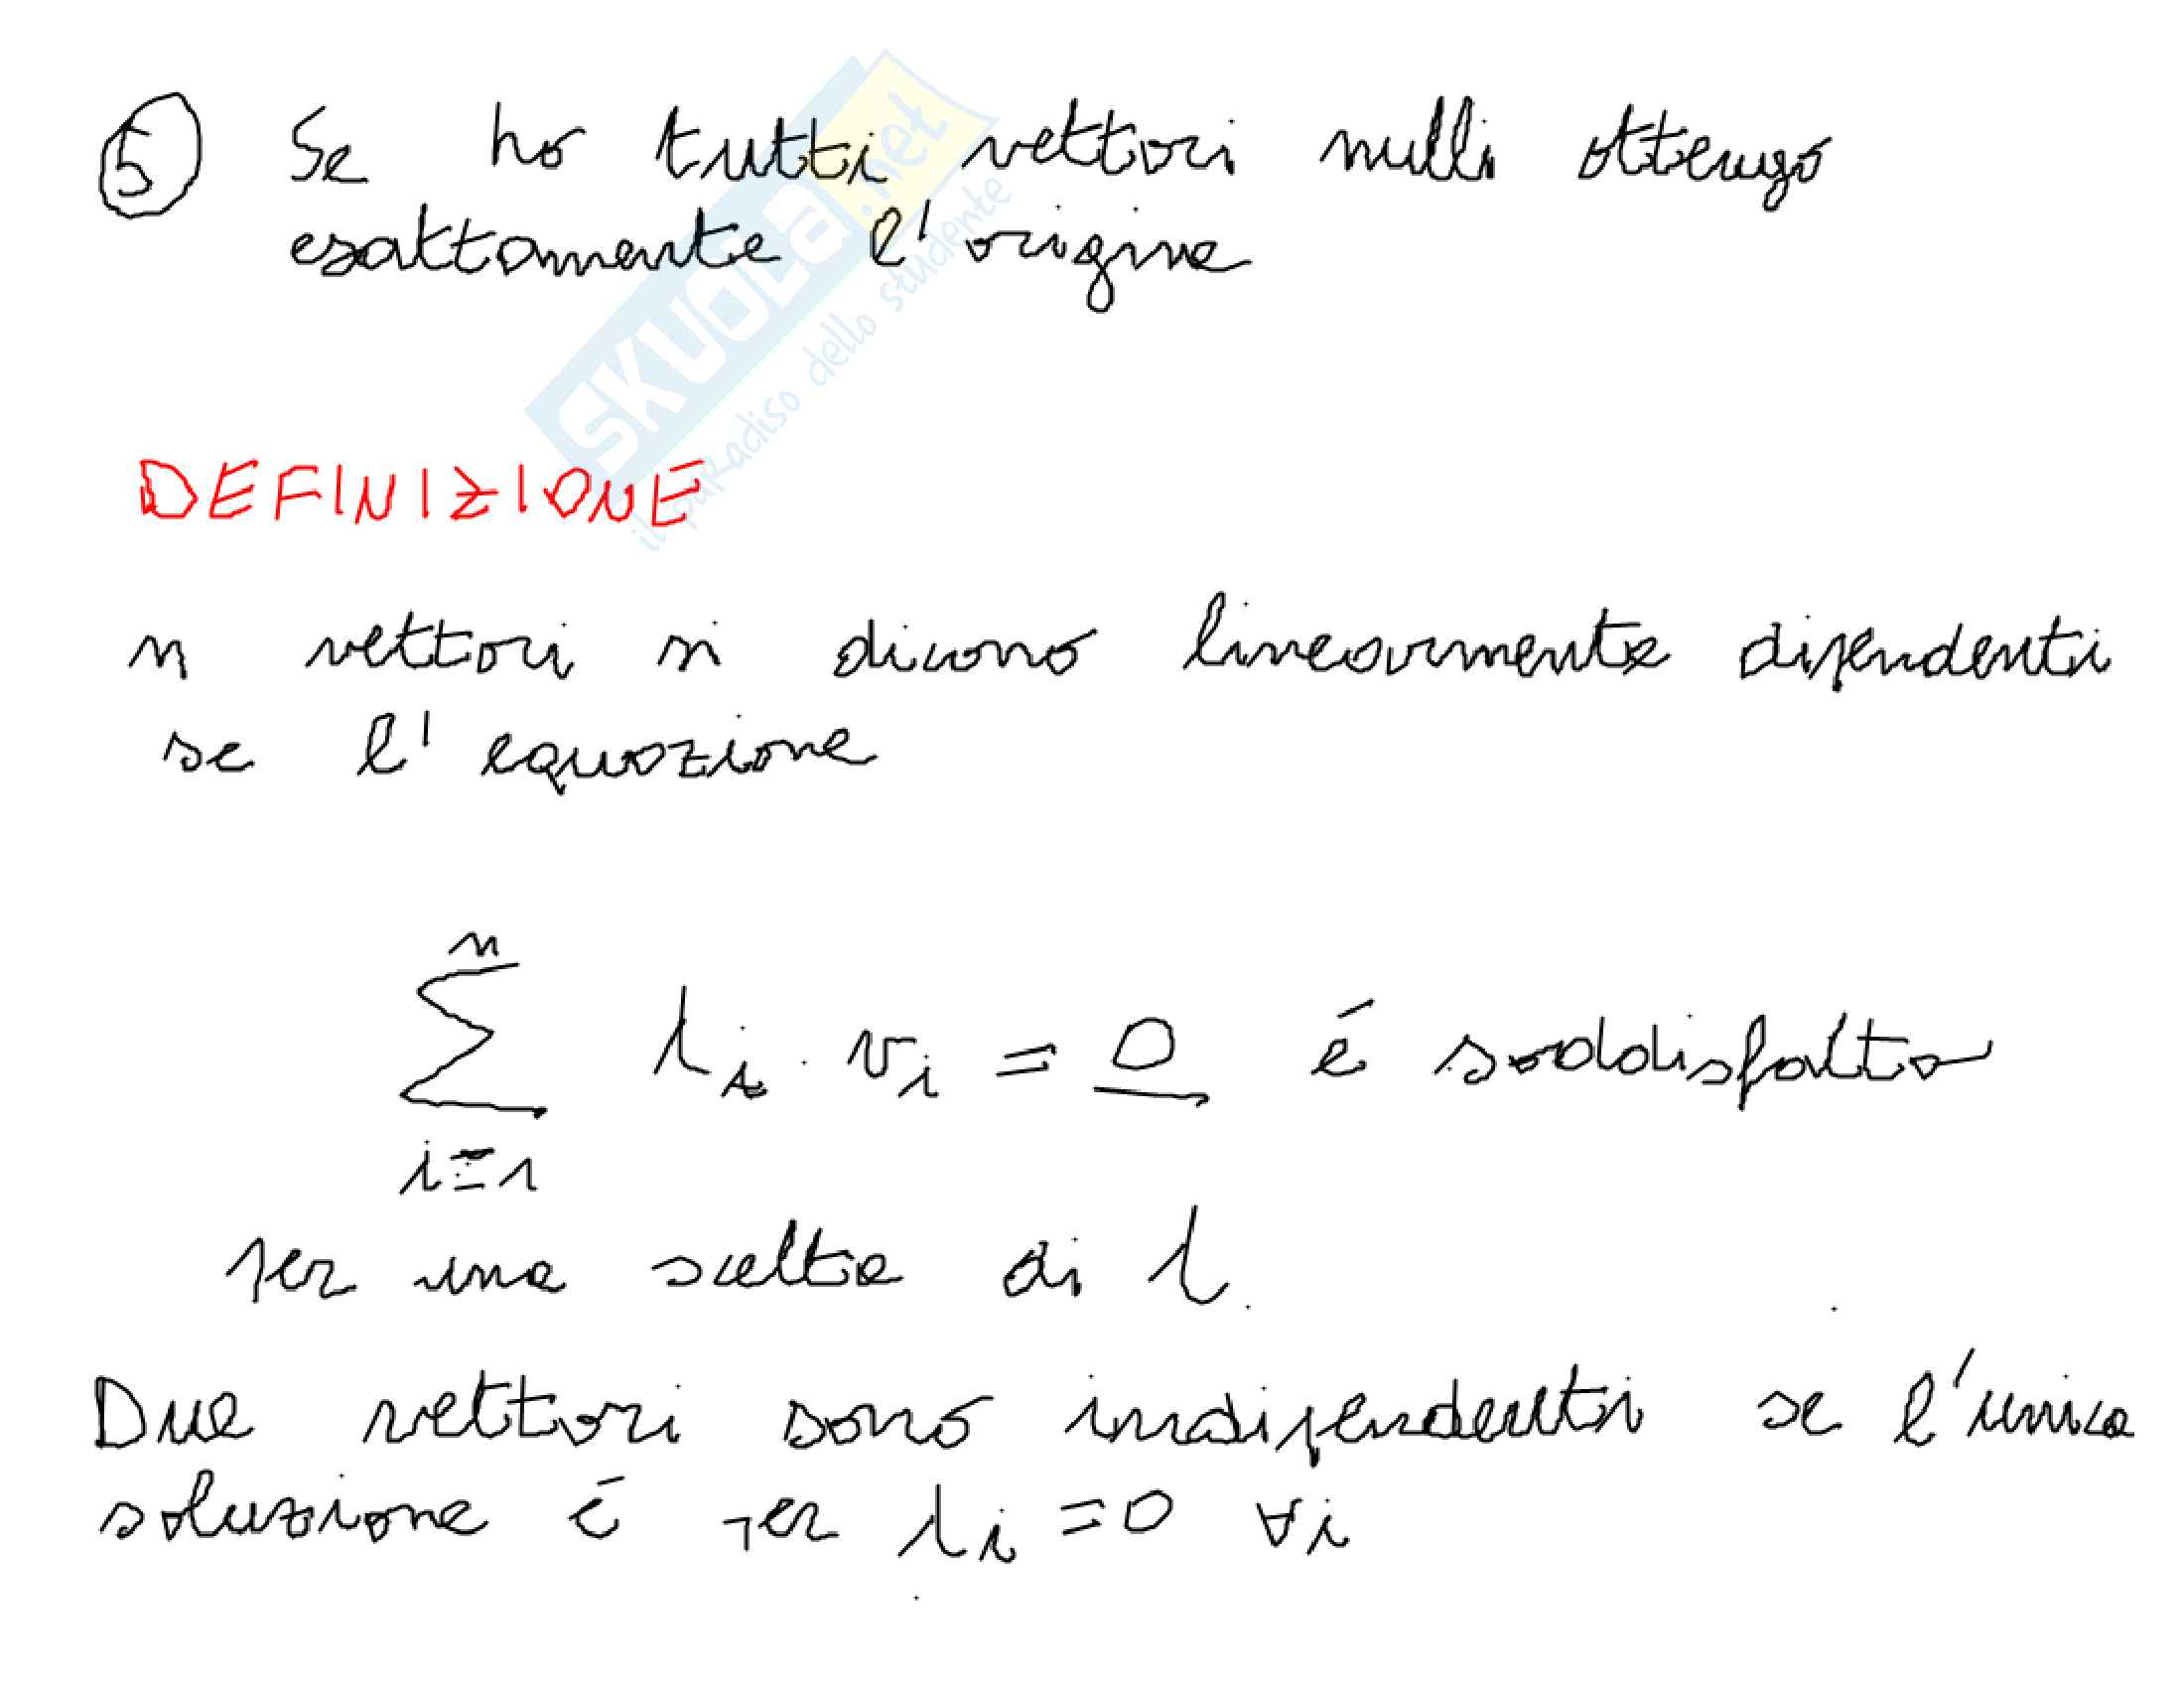 ⑤ Se ho tutti vettori nulli ottengo
esattamente l'origine
SKUOLA.net
il paradiso dello studente
DEFINIZIONE
n vettori si dicono linearmente dipendenti
se l'equazione
n
∑ λi · vi = 0 é soddisfatta
i=1
per una scelta di λ.
Due vettori sono indipendenti se l'unica
soluzione é per λi = 0 ∀i